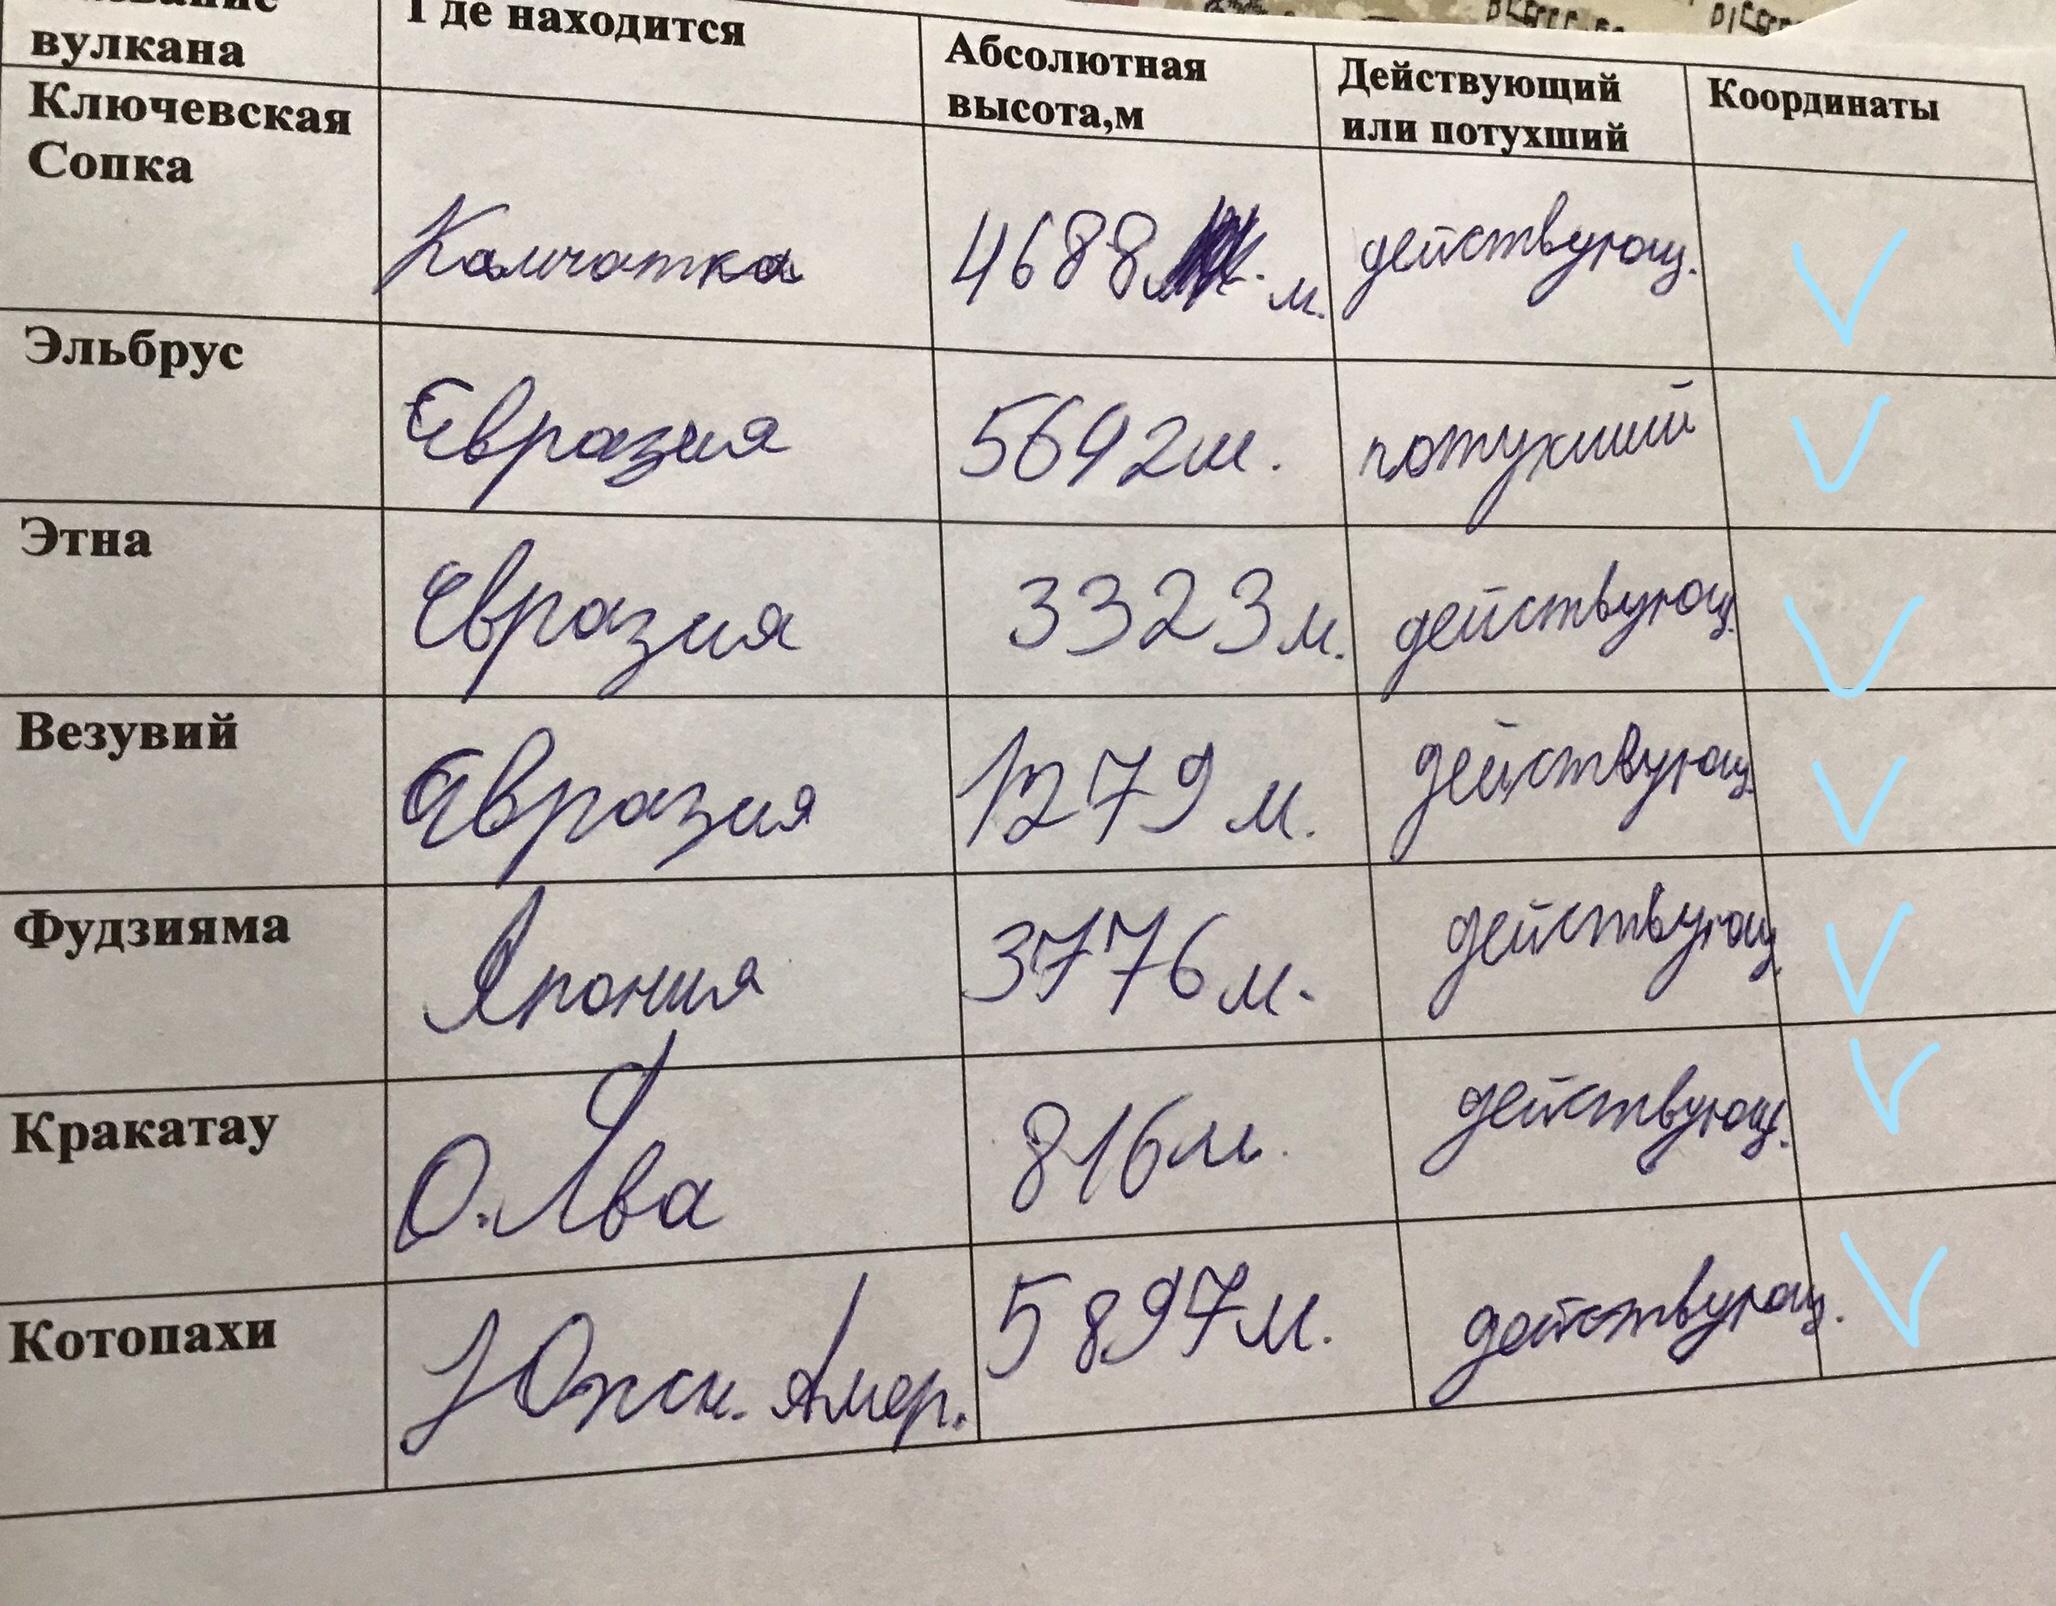 вулкана
Где находится
Абсолютная
высота,м
Действующий
или потухший
Координаты
Ключевская
Сопка
Камчатка
4688 м.
действующ.
Эльбрус
Евразия
5642м.
потухший
Этна
Евразия
3323м.
действующ.
Везувий
Евразия
1279 м.
действующ.
Фудзияма
Япония
3776м.
действующ
Кракатау
О.Ява
816м.
действующ.
Котопахи
Южн. Амер.
5897м.
действующ.